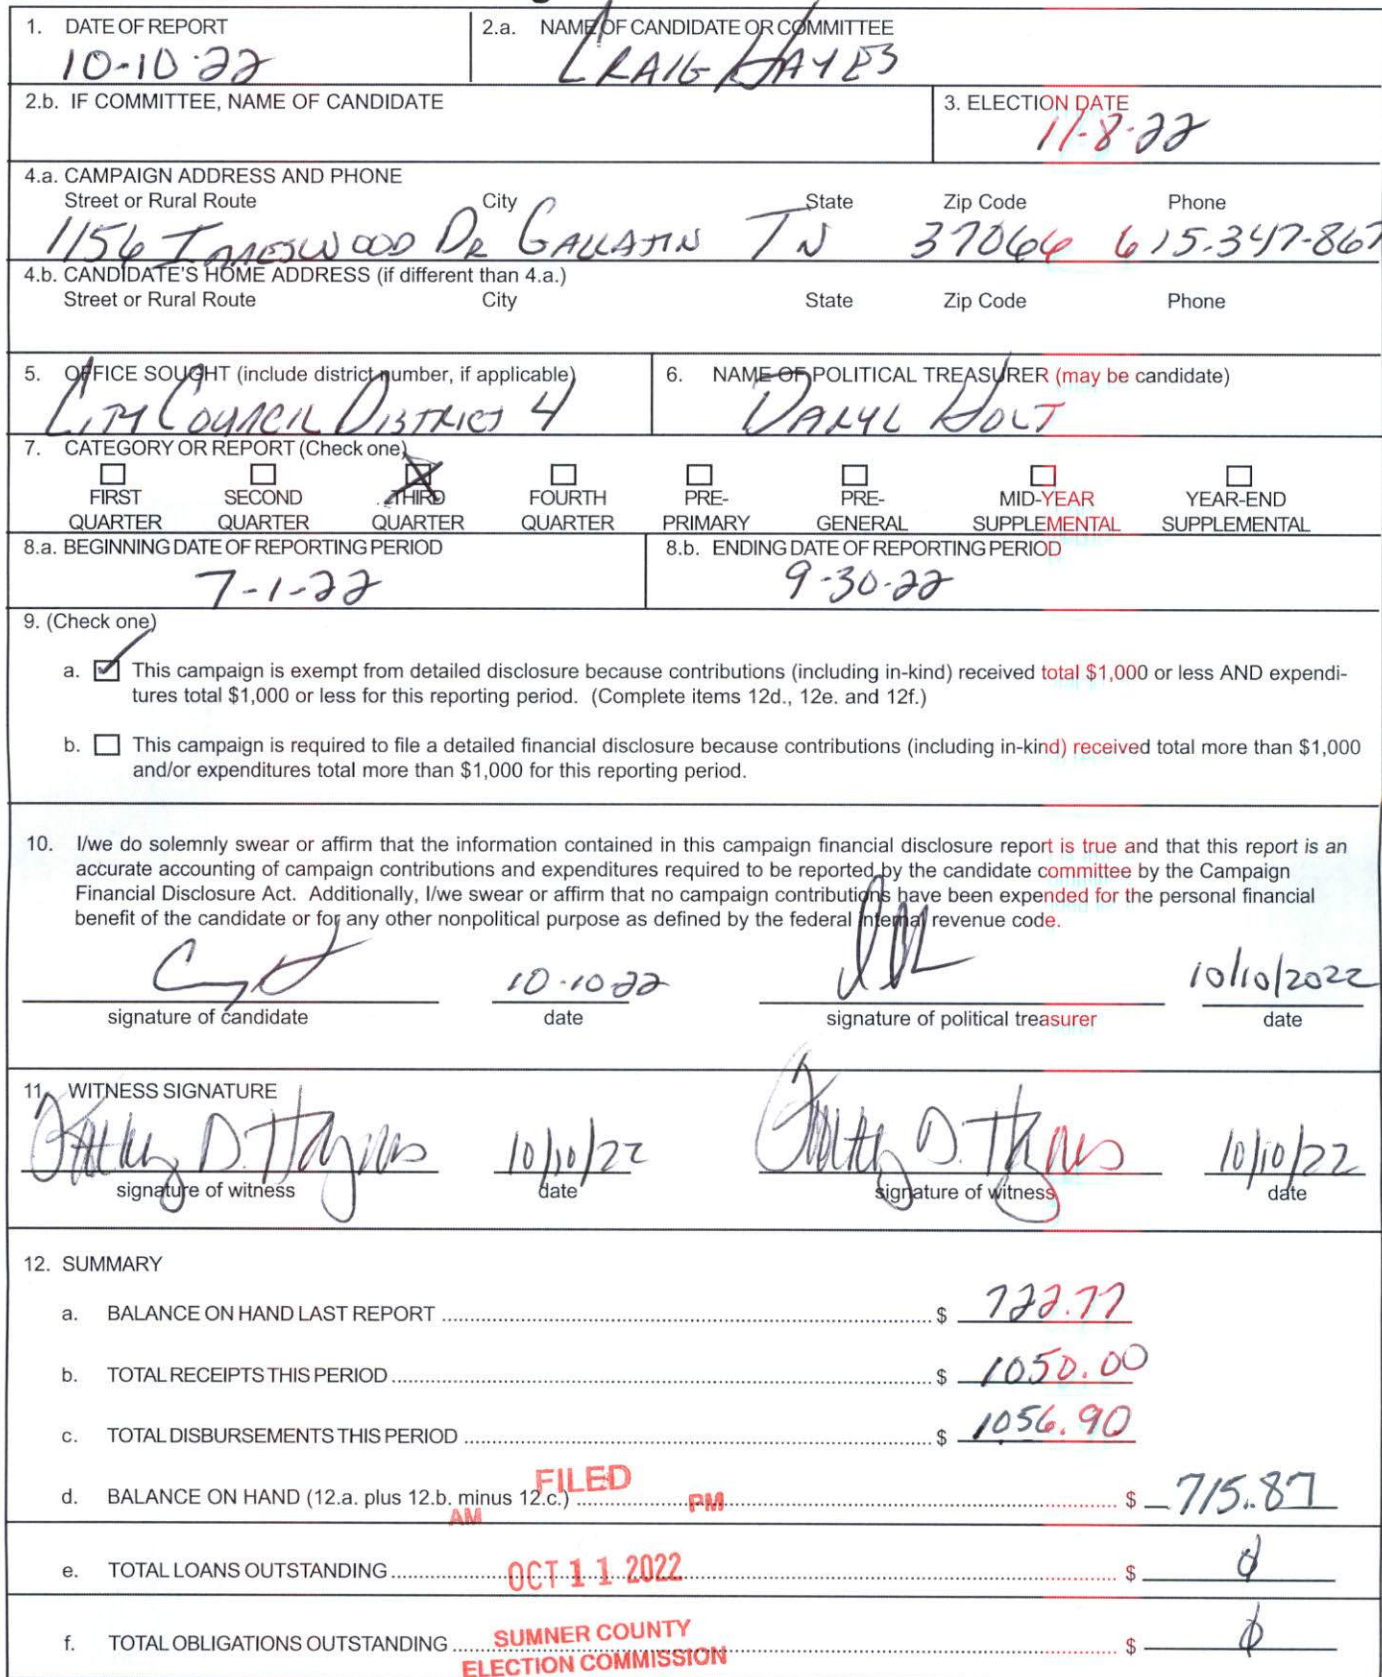 1. DATE OF REPORT
10-10-22
2.a. NAME OF CANDIDATE OR COMMITTEE
CRAIG HAYES
2.b. IF COMMITTEE, NAME OF CANDIDATE
3. ELECTION DATE
11-8-22
4.a. CAMPAIGN ADDRESS AND PHONE
Street or Rural Route City State Zip Code Phone
1156 DR GALLATIN TN 37066 615-347-867
4.b. CANDIDATE'S HOME ADDRESS (if different than 4.a.)
Street or Rural Route City State Zip Code Phone
5. OFFICE SOUGHT (include district number, if applicable)
CITY COUNCIL DISTRICT 4
6. NAME OF POLITICAL TREASURER (may be candidate)
DARYL HOLT
7. CATEGORY OR REPORT (Check one)
FIRST QUARTER
SECOND QUARTER
THIRD QUARTER
FOURTH QUARTER
PRE-PRIMARY
PRE-GENERAL
MID-YEAR SUPPLEMENTAL
YEAR-END SUPPLEMENTAL
8.a. BEGINNING DATE OF REPORTING PERIOD
7-1-22
8.b. ENDING DATE OF REPORTING PERIOD
9-30-22
9. (Check one)
a. This campaign is exempt from detailed disclosure because contributions (including in-kind) received total $1,000 or less AND expendi-
tures total $1,000 or less for this reporting period. (Complete items 12d., 12e. and 12f.)
b. This campaign is required to file a detailed financial disclosure because contributions (including in-kind) received total more than $1,000
and/or expenditures total more than $1,000 for this reporting period.
10. I/we do solemnly swear or affirm that the information contained in this campaign financial disclosure report is true and that this report is an
accurate accounting of campaign contributions and expenditures required to be reported by the candidate committee by the Campaign
Financial Disclosure Act. Additionally, I/we swear or affirm that no campaign contributions have been expended for the personal financial
benefit of the candidate or for any other nonpolitical purpose as defined by the federal internal revenue code.
10-10-22 10/10/2022
signature of candidate date signature of political treasurer date
11. WITNESS SIGNATURE
10/10/22 10/10/22
signature of witness date signature of witness date
12. SUMMARY
a. BALANCE ON HAND LAST REPORT $ 722.77
b. TOTAL RECEIPTS THIS PERIOD $ 1050.00
c. TOTAL DISBURSEMENTS THIS PERIOD $ 1056.90
FILED
d. BALANCE ON HAND (12.a. plus 12.b. minus 12.c.) $ 715.87
AM PM
e. TOTAL LOANS OUTSTANDING $ 0
OCT 11 2022
f. TOTAL OBLIGATIONS OUTSTANDING $ 0
SUMNER COUNTY
ELECTION COMMISSION